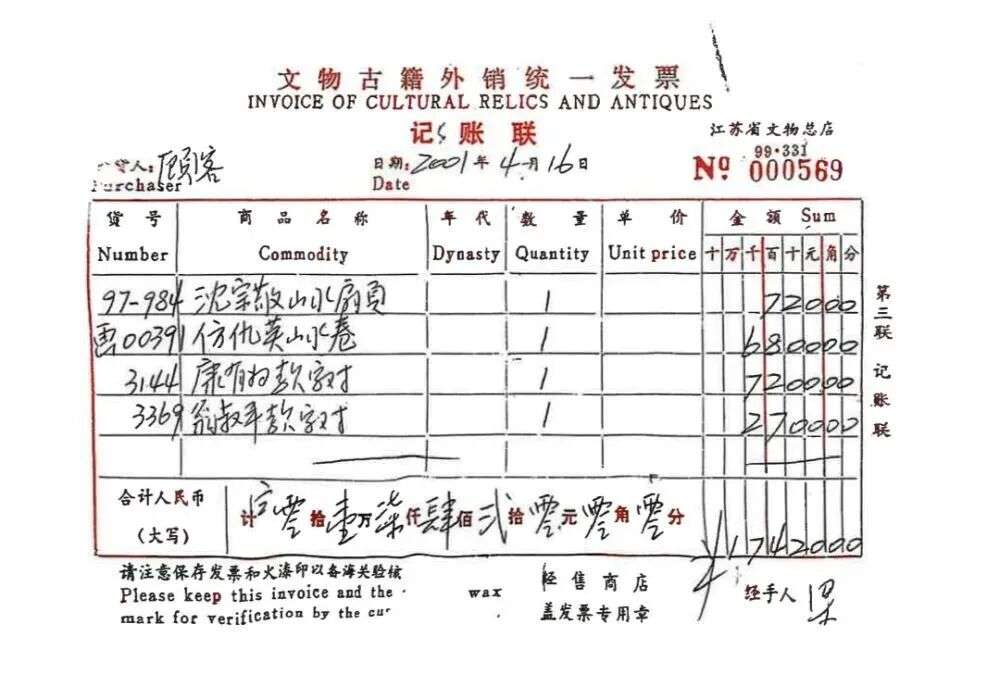 文物古籍外销统一发票
INVOICE OF CULTURAL RELICS AND ANTIQUES
记账联
江苏省文物总店
99·331
Nº 000569
货人: 顾客
Purchaser
日期: 2001年4月16日
Date
货号 商品名称 年代 数量 单价 金额 Sum
Number Commodity Dynasty Quantity Unit price 十万千百十元角分
97-984 沈宗敬山水扇页 1 72000
画00391 仿仇英山水卷 1 680000
3144 康有为款字对 1 720000
3369 翁叔平款字对 1 270000
合计人民币
(大写)
计 零拾壹万柒仟肆佰贰拾零元零角零分
¥1742000
第三联 记账联
请注意保存发票和火漆印以备海关验核
Please keep this invoice and the wax
mark for verification by the cu
经售商店
盖发票专用章
经手人